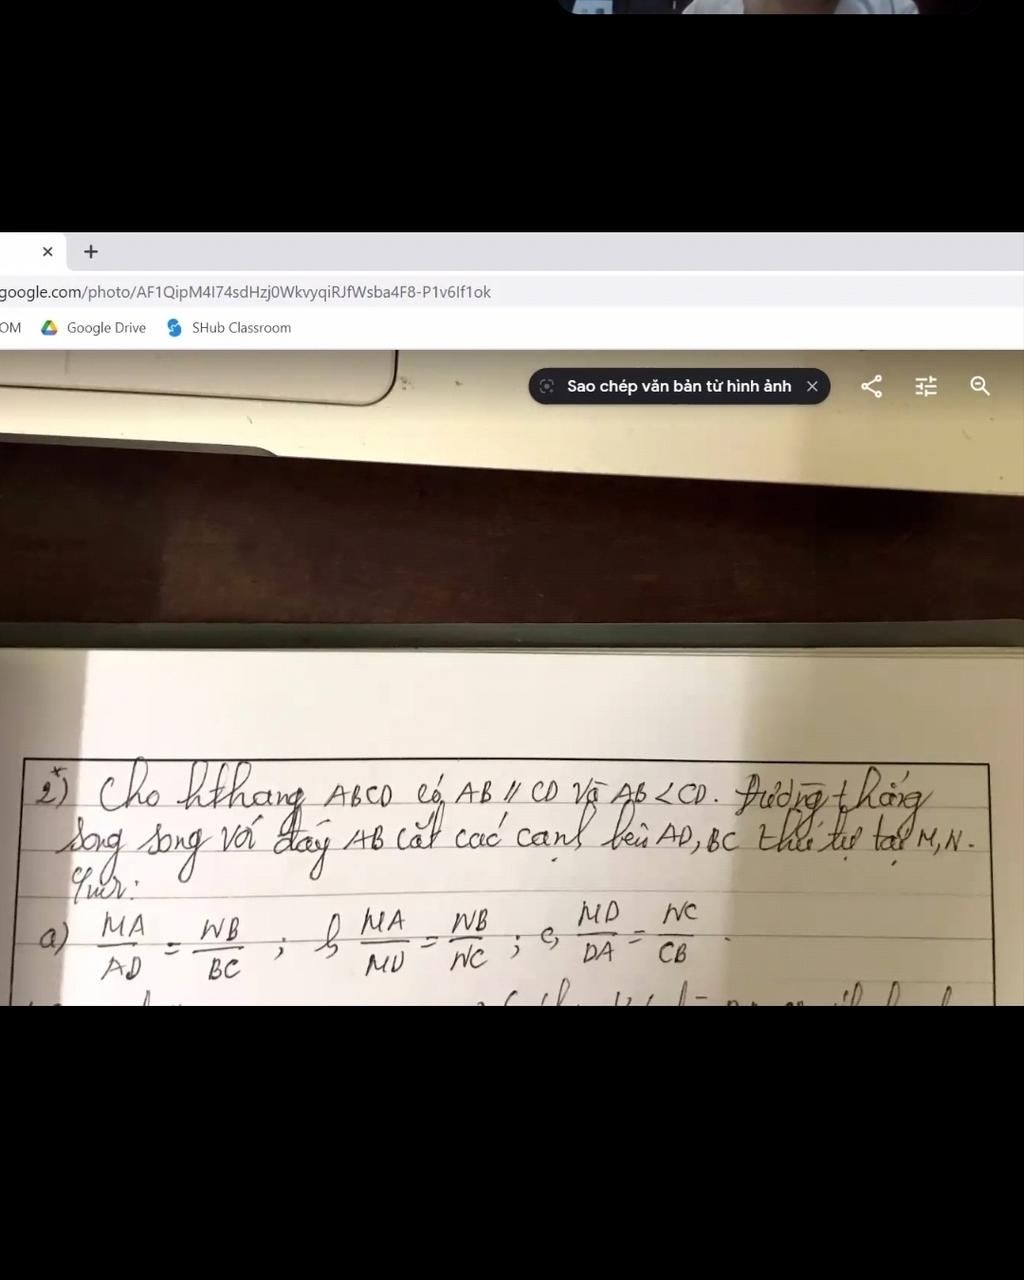 google.com/photo/AF1QipM4I74sdHzj0WkvyqiRJfWsba4F8-P1v6If1ok
OM Google Drive SHub Classroom
Sao chép văn bản từ hình ảnh
2*) Cho hthang ABCD có AB // CD và AB < CD. Đường thẳng
song song với đáy AB cắt các cạnh bên AD, BC thứ tự tại M, N.
Cmr:
a) MA/AD = NB/BC ; b, MA/MD = NB/NC ; c, MD/DA = NC/CB .